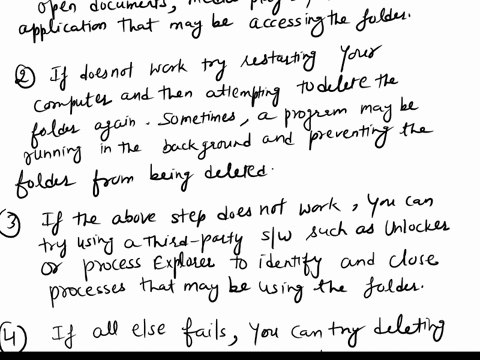 open documents, media
application that may be accessing the folder.
② If doesnot work try restarting your
computer and then attempting to delete the
folder again. Sometimes, a program may be
running in the background and preventing the
folder from being deleted.
③ If the above step does not work, you can
try using a third-party s/w such as Unlocker
or process Explorer to identify and close
processes that may be using the folder.
④ If all else fails, you can try deleting